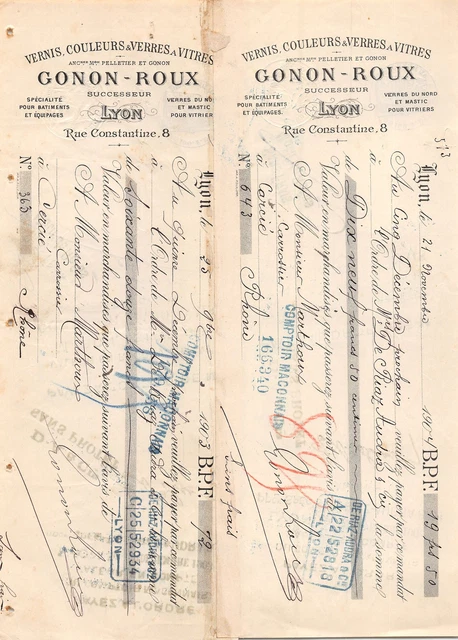 VERNIS, COULEURS & VERRES A VITRES
ANCNNE MON PELLETIER ET GONON
GONON-ROUX
SUCCESSEUR
SPÉCIALITÉ
POUR BATIMENTS
ET ÉQUIPAGES
LYON
VERRES DU NORD
ET MASTIC
POUR VITRIERS
Rue Constantine, 8
Lyon, le 23 9bre 1903 B.P.F. 72
à
veuillez payer par ce mandat
à l'Ordre de
la somme
de soixante douze francs
Valeur en marchandises que passerez suivant l'avis de
A Monsieur Marthoux
Carrossier
à Cercié
Rhône
N° 363
COMPTOIR MACONNAIS
C 25152934
LYON
VERNIS, COULEURS & VERRES A VITRES
ANCNNE MON PELLETIER ET GONON
GONON-ROUX
SUCCESSEUR
SPÉCIALITÉ
POUR BATIMENTS
ET ÉQUIPAGES.
LYON
VERRES DU NORD
ET MASTIC
POUR VITRIERS
Rue Constantine, 8
513
Lyon, le 21 Novembre 1904 B.P.F. 19 fs 50
Au Cinq Décembre prochain veuillez payer par ce mandat
à l'Ordre de Mrs De Riaz Audra & Cy la somme
de Dix neuf francs 50 centimes
Valeur en marchandises que passerez suivant l'avis de
A Monsieur Marthoux
Carrossier
à Cercié
Rhône
N° 643
Gonon Roux
sans frais
COMPTOIR MACONNAIS
166340
DE RIAZ AUDRA & Cie
A 22 52818
LYON